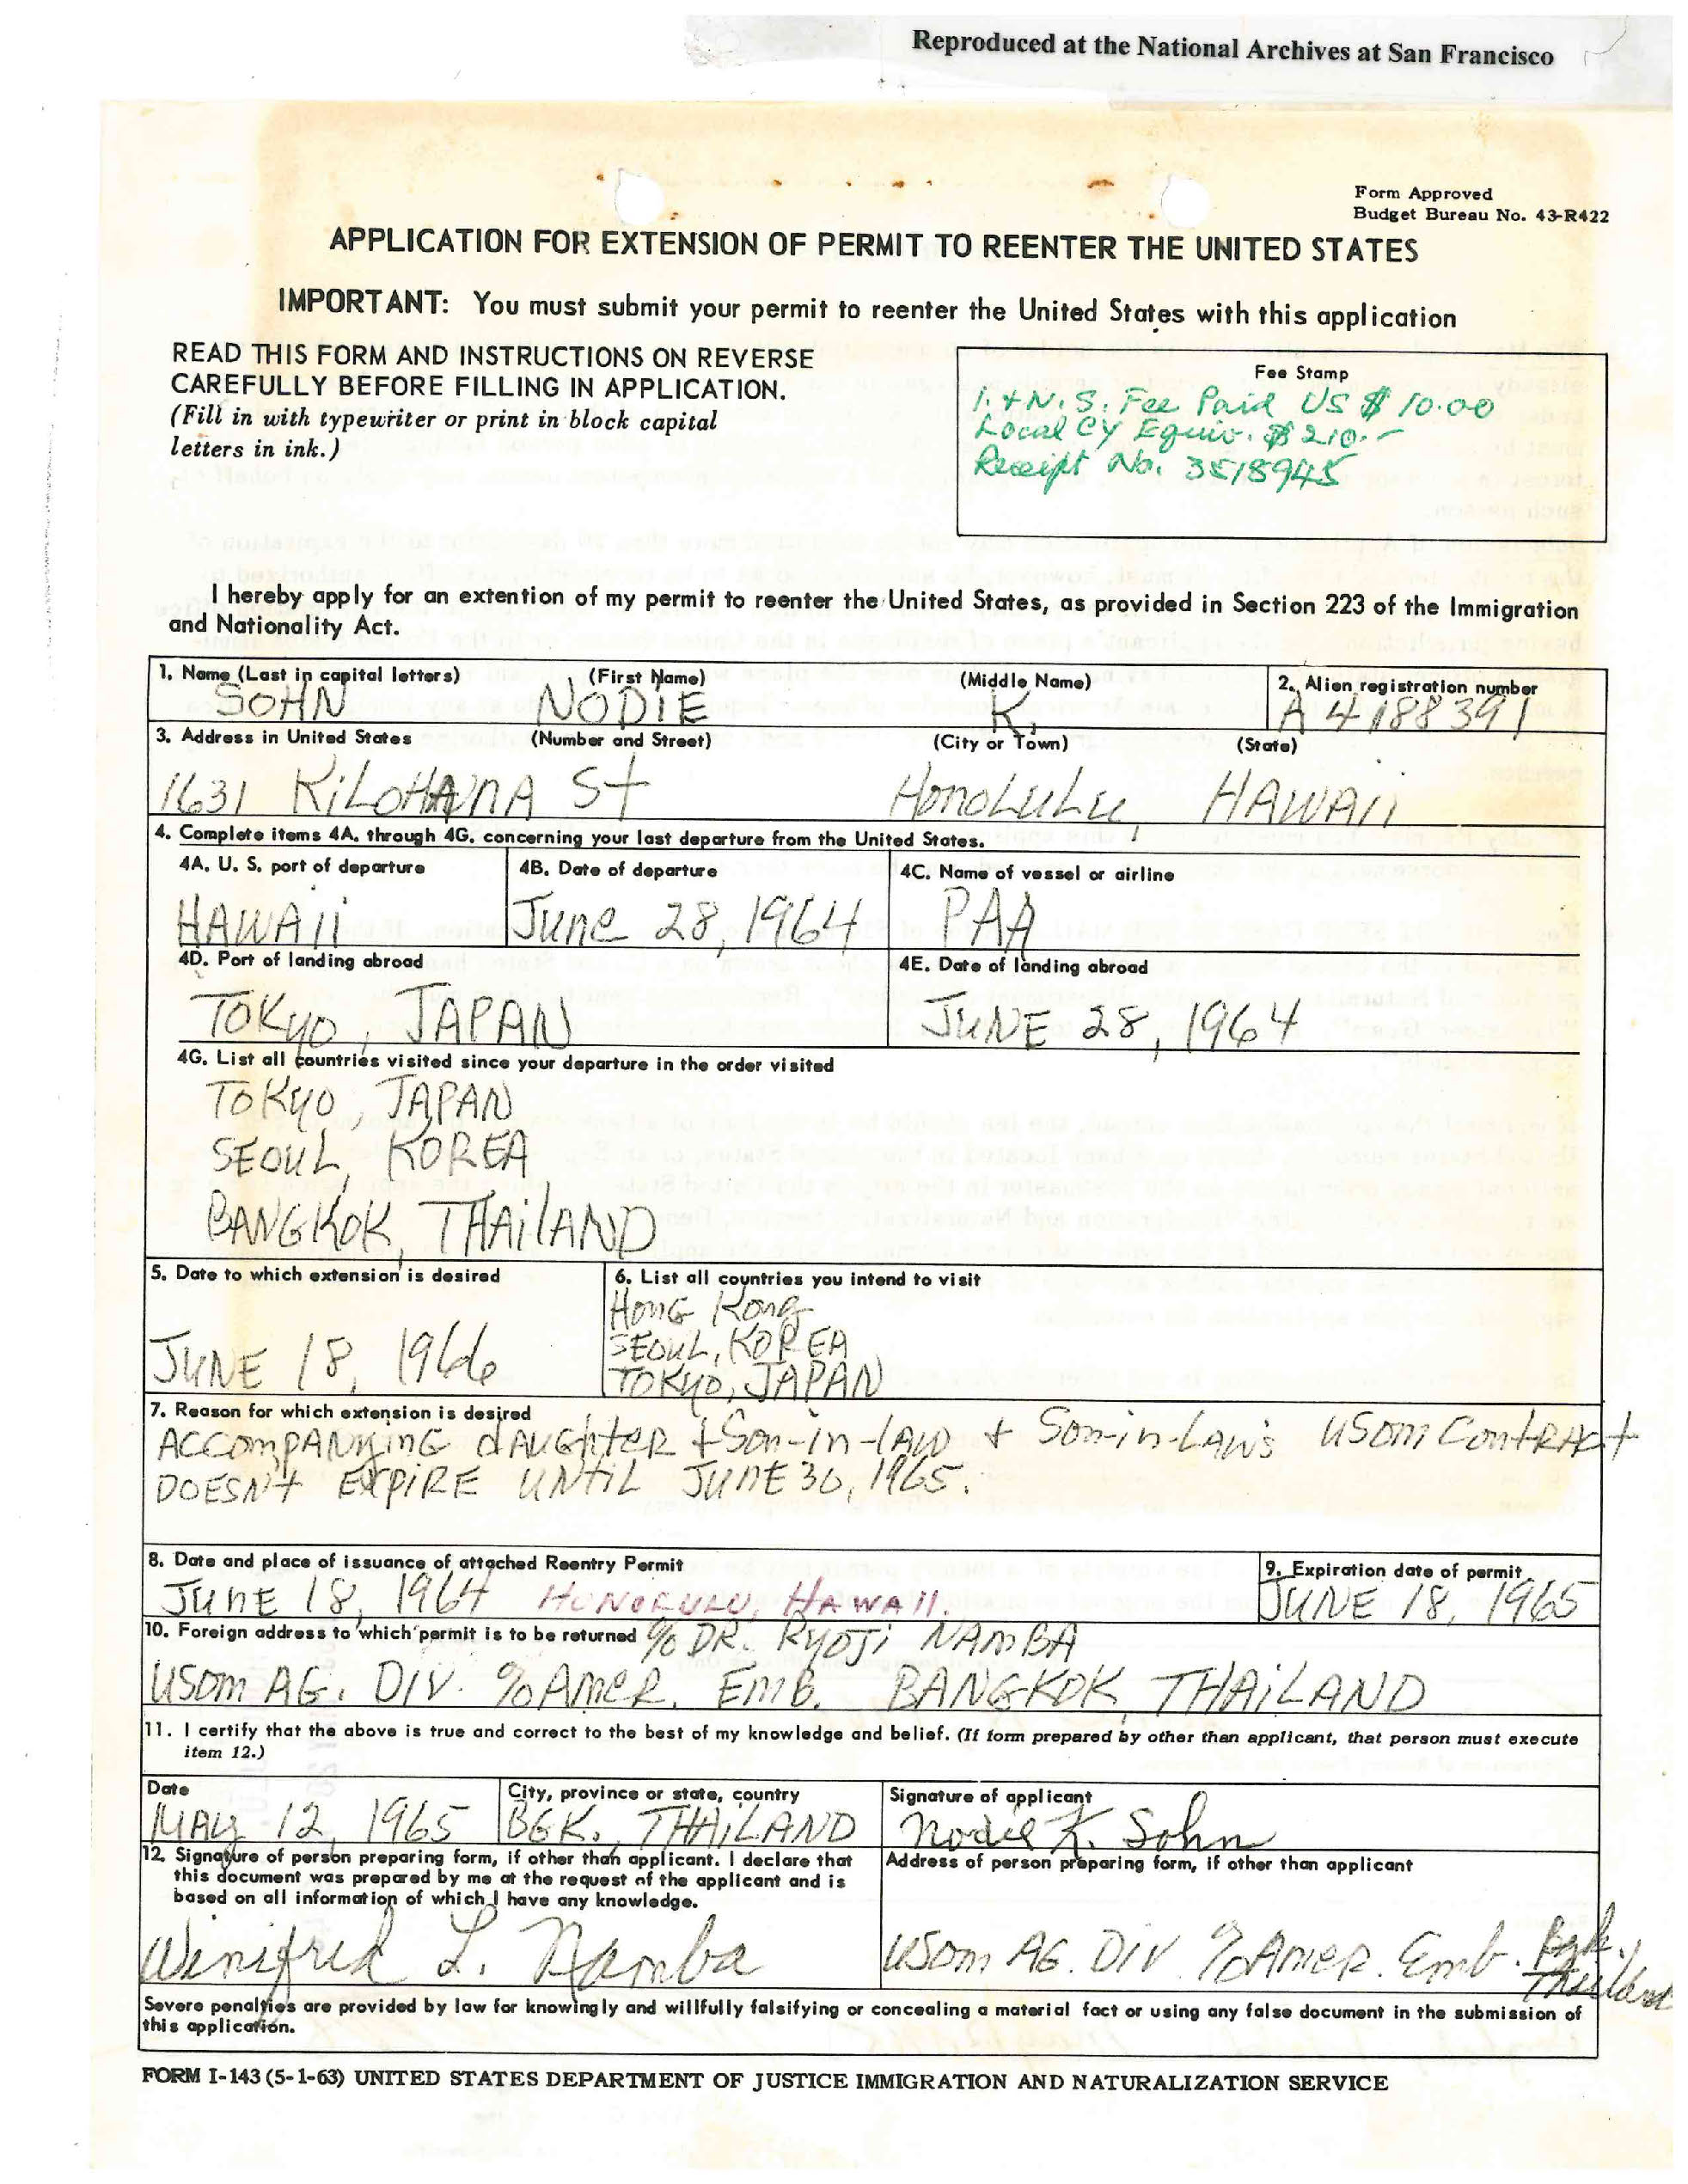 Reproduced at the National Archives at San Francisco
Form Approved
Budget Bureau No. 43-R422
APPLICATION FOR EXTENSION OF PERMIT TO REENTER THE UNITED STATES
IMPORTANT: You must submit your permit to reenter the United States with this application
READ THIS FORM AND INSTRUCTIONS ON REVERSE
CAREFULLY BEFORE FILLING IN APPLICATION.
(Fill in with typewriter or print in block capital
letters in ink.)
Fee Stamp
I. & N. S. Fee Paid US $ 10.00
Local Cy Equiv. ฿ 210.-
Receipt No. 3518945
I hereby apply for an extention of my permit to reenter the United States, as provided in Section 223 of the Immigration
and Nationality Act.
1. Name (Last in capital letters) (First Name) (Middle Name) 2. Alien registration number
SOHN NODIE K. A 4188391
3. Address in United States (Number and Street) (City or Town) (State)
1631 KiLOHANA St HONOLULU, HAWAII
4. Complete items 4A. through 4G. concerning your last departure from the United States.
4A. U. S. port of departure 4B. Date of departure 4C. Name of vessel or airline
HAWAII June 28, 1964 PAA
4D. Port of landing abroad 4E. Date of landing abroad
TOKYO, JAPAN JUNE 28, 1964
4G. List all countries visited since your departure in the order visited
TOKYO, JAPAN
SEOUL, KOREA
BANGKOK, THAILAND
5. Date to which extension is desired 6. List all countries you intend to visit
HONG KONG
SEOUL, KOREA
JUNE 18, 1966 TOKYO, JAPAN
7. Reason for which extension is desired
ACCOMPANYING dAUGHTER + Son-in-lAW + Son-in-LAW's USOM CONTRACT
DOESN't EXPIRE UNTIL JUNE 30, 1965.
8. Date and place of issuance of attached Reentry Permit 9. Expiration date of permit
JUNE 18, 1964 HONORURU, HAWAII. JUNE 18, 1965
10. Foreign address to which permit is to be returned % DR. RYOJI NAMBA
USOM AG. DIV. % AMER. EMB. BANGKOK, THAILAND
11. I certify that the above is true and correct to the best of my knowledge and belief. (If form prepared by other than applicant, that person must execute
item 12.)
Date City, province or state, country Signature of applicant
MAY 12, 1965 BGK., THAILAND Nodie K. Sohn
12. Signature of person preparing form, if other than applicant. I declare that
this document was prepared by me at the request of the applicant and is
based on all information of which I have any knowledge.
Address of person preparing form, if other than applicant
Winifred L. Namba USOM AG. DIV. % AMER. Emb. Bgk., Thailand
Severe penalties are provided by law for knowingly and willfully falsifying or concealing a material fact or using any false document in the submission of
this application.
FORM I-143 (5-1-63) UNITED STATES DEPARTMENT OF JUSTICE IMMIGRATION AND NATURALIZATION SERVICE